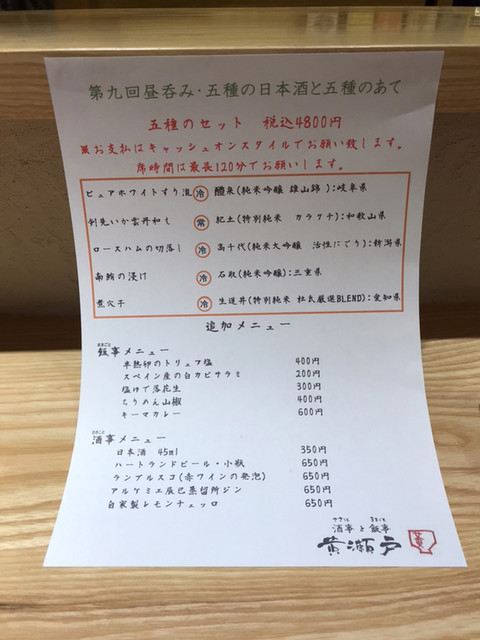 第九回昼呑み・五種の日本酒と五種のあて
五種のセット 税込4800円
※お支払はキャッシュオンスタイルでお願い致します。
席時間は最長120分でお願いします。
ピュアホワイトすり流 冷 醴泉(純米吟醸 雄山錦):岐阜県
剣先いか雲丹和え 常 紀土(特別純米 カラクチ):和歌山県
ロースハムの切落し 冷 高千代(純米大吟醸 活性にごり):新潟県
南鮪の漬け 冷 石取(純米吟醸):三重県
煮穴子 冷 生道井(特別純米 杜氏厳選BLEND):愛知県
追加メニュー
飯事メニュー
半熟卵のトリュフ塩 400円
スペイン産の白カビサラミ 200円
塩ゆで落花生 300円
ちりめん山椒 400円
キーマカレー 600円
酒事メニュー
日本酒 45ml 350円
ハートランドビール・小瓶 650円
ランブルスコ(赤ワインの発泡) 650円
アルケミエ辰巳蒸留所ジン 650円
自家製レモンチェッロ 650円
酒事と飯事
黄瀬戸